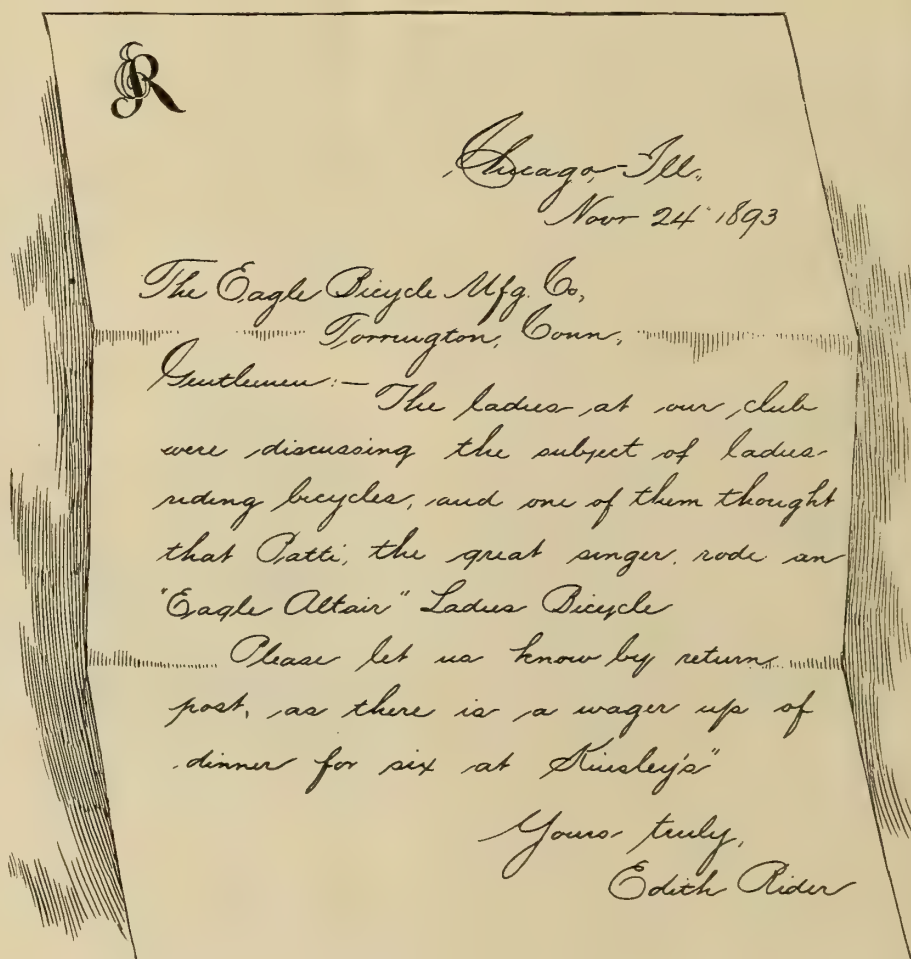 ER
Chicago, Ill.,
Novr 24 1893
The Eagle Bicycle Mfg. Co,
Torrington, Conn,
Gentlemen:— The ladies at our club
were discussing the subject of ladies
riding bicycles, and one of them thought
that Patti, the great singer, rode an
"Eagle Altair" Ladies Bicycle
Please let us know by return
post, as there is a wager up of
dinner for six at Kinsley's"
Yours truly,
Edith Rider